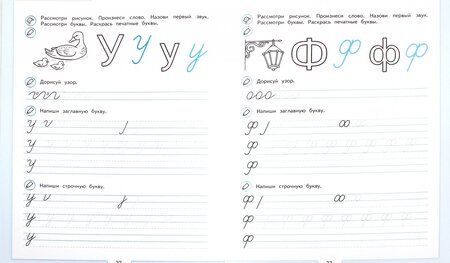 Рассмотри рисунок. Произнеси слово. Назови первый звук.
Рассмотри буквы. Раскрась печатные буквы.
У У у у
Дорисуй узор.
Напиши заглавную букву.
У
У
У
Напиши строчную букву.
у
у
у
Рассмотри рисунок. Произнеси слово. Назови первый звук.
Рассмотри буквы. Раскрась печатные буквы.
Ф Ф ф ф
Дорисуй узор.
Напиши заглавную букву.
Ф
Ф
Ф
Напиши строчную букву.
ф
ф
ф